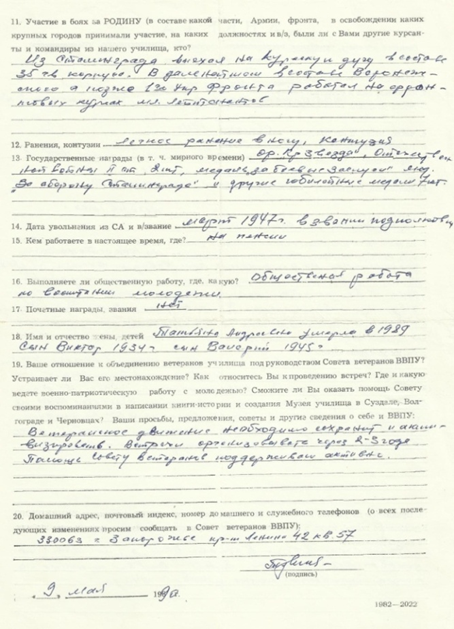 11. Участие в боях за РОДИНУ (в составе какой части, Армии, фронта, в освобождении каких
крупных городов принимали участие, на каких должностях и в/з, были ли с Вами другие курсан-
ты и командиры из нашего училища, кто?
Из Сталинграда выехал на Курскую дугу в составе
35 гв. корпуса. В дальнейшем в составе Воронеж-
ского а позже 1го Укр фронта работал на фрон-
товых курсах мл. лейтенантов
12. Ранения, контузии легкое ранение в ногу, контузия
13. Государственные награды (в т. ч. мирного времени) ор. Кр Звезда, Отечествен
ной войны II ст. 2шт, медаль за боевые заслуги, мед.
"За оборону Сталинграда" и другие юбилейные медали
14. Дата увольнения из СА и в/звание март 1947г. в звании
15. Кем работаете в настоящее время, где? на пенсии
16. Выполняете ли общественную работу, где, какую? Общественная работа
по воспитанию молодежи
17. Почетные награды, звания нет
18. Имя и отчество жены, детей Татьяна Андреевна умерла в 1989
сын Виктор 1934г сын Валерий 1945г
19. Ваше отношение к объединению ветеранов училища под руководством Совета ветеранов ВВПУ?
Устраивает ли Вас его местонахождение? Как относитесь Вы к проведению встреч? Где и какую
ведете военно-патриотическую работу с молодежью? Сможете ли Вы оказать помощь Совету
своими воспоминаниями в написании книги-истории и создания Музея училища в Суздале, Вол-
гограде и Черновцах? Ваши просьбы, предложения, советы и другие сведения о себе и ВВПУ:
Ветеранское движение необходимо сохранить и акти-
визировать. Встречи организовывать через 2-3 года
Помощь Совету ветеранов поддерживаю активно.
20. Домашний адрес, почтовый индекс, номер домашнего и служебного телефонов (о всех после-
дующих изменениях просим сообщать в Совет ветеранов ВВПУ):
330063 г. Запорожье пр-т Ленина 42 кв. 57
(подпись)
9 мая 1990
1982—2022